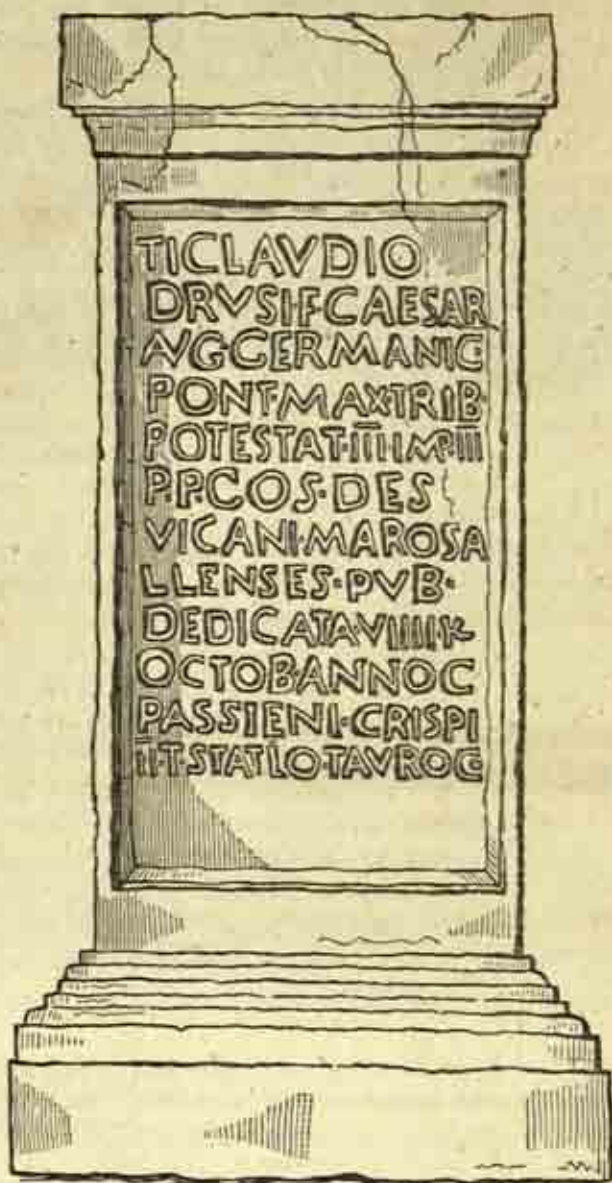 TI CLAVDIO
DRVSI·F·CAESAR
AVG·GERMANIC·
PONT·MAX·TRIB·
POTESTAT·III·IMP·III
P·P·COS·DES
VICANI·MAROSA
LLENSES·PVB·
DEDICATA·VIIII·K
OCTOB·ANNO C
PASSIENI·CRISPI
II·T·STATLO·TAVRO C·